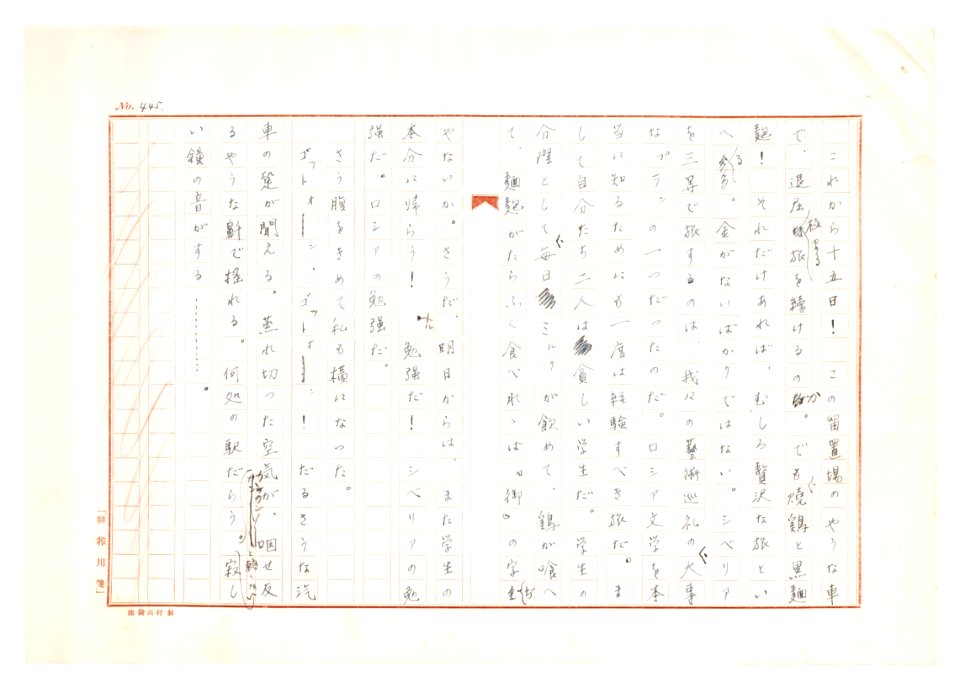 No. 445.
これから十五日！この留置場のやうな車
で、退屈極まる旅を続けるのか。でも焼鶏と黒麺
麭！それだけあれば、むしろ贅沢な旅とい
へる。金がないばかりではない。シベリア
を三等で旅するのは、我々の藝術巡礼の大事
なプランの一つだったのだ。ロシア文学を本
当に知るためにも一度は経験すべき旅だ。ま
して自分たち二人は貧しい学生だ。学生の
分際として毎日ミルクが飲めて、鶏が喰へ
て、麺麭がたらふく食べれゝば。御。の字
やないか。さうだ、明日からは、また学生の
本分に帰らう！勉強だ！シベリアの勉
強だ。ロシアの勉強だ。
さう腹をきめて私も横になつた。
ゴットォーン、ゴットォーン！だるさうな汽
車の音が聞える。蒸れ切った空気が、咽せ反
るやうな鼾で揺れる。何処の駅だらう。寂し
い鐘の音がする…………。